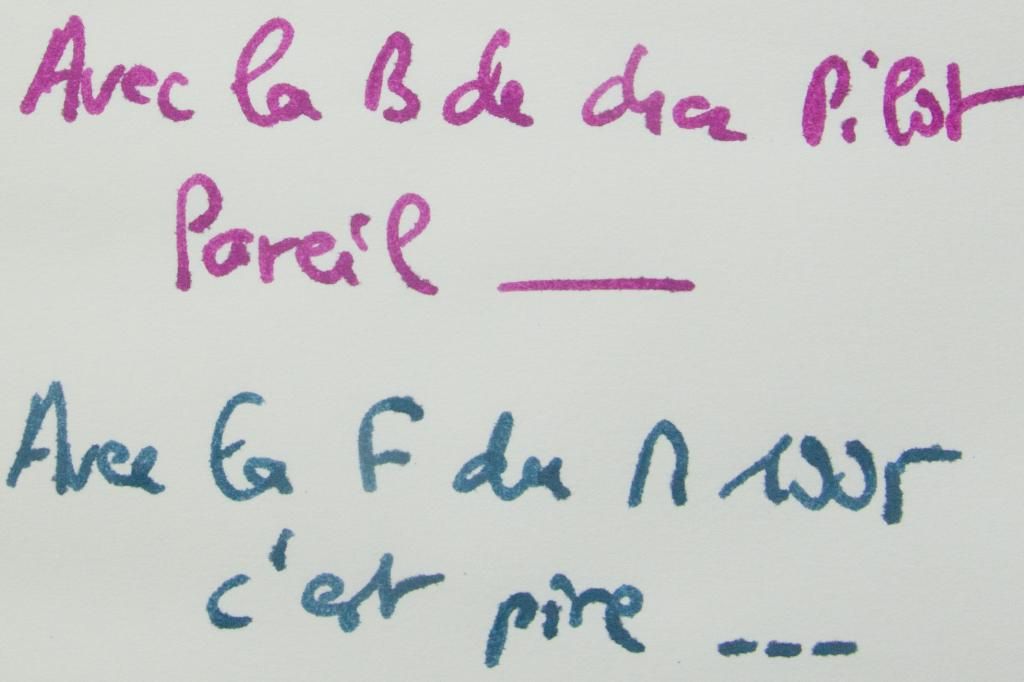 Avec la B de chez Pilot
Pareil ___
Avec la F du M 1005
c'est pire ---